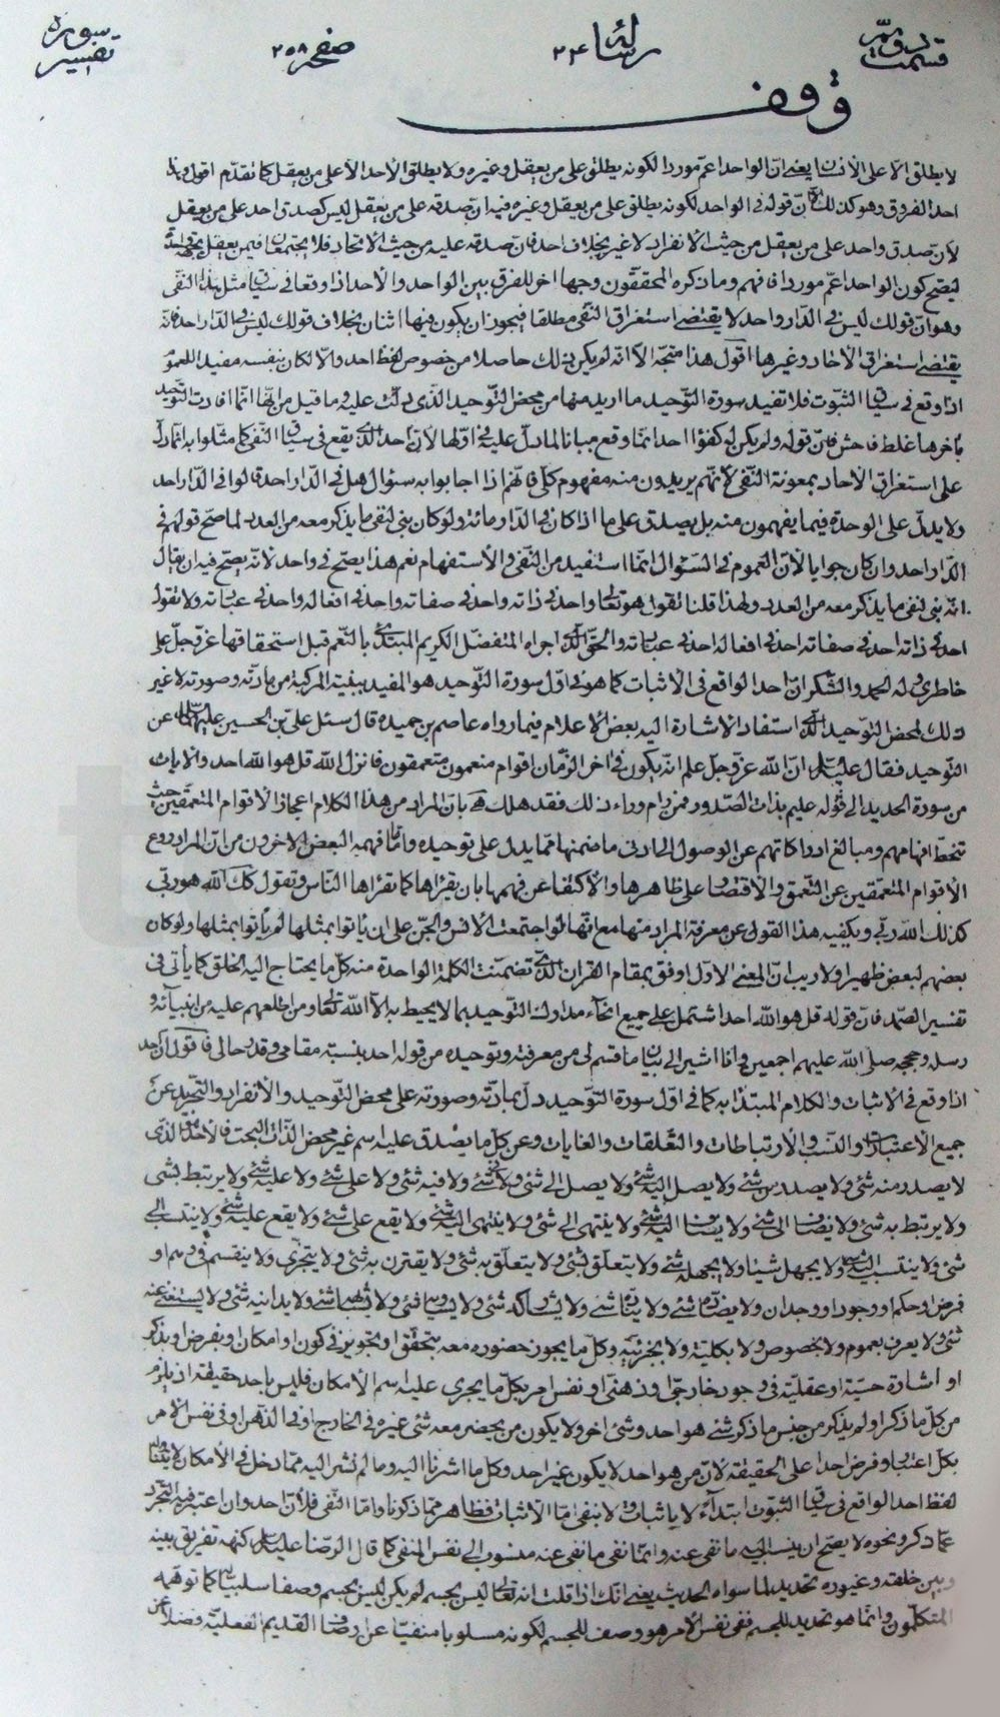 قسمت دویم رسالهٔ ۲۴ صفحه ۲۵۸ تفسیر سوره
وقف
لا يطلق الا على الانسان يعنى ان الواحد اعم موردا لكونه يطلق على من يعقل وغيره ولا يطلق الاحد الا على من يعقل كما تقدم اقول وهذا
احد الفروق وهو كذلك لان قوله فى الواحد لكونه يطلق على من يعقل وغيره فيه ان صدقه على من يعقل ليس كصدق احد على من يعقل
لان صدق واحد على من يعقل من حيث الانفراد لا غير بخلاف احد فان صدقه عليه من حيث الاتحاد فلا يجتمعان فيمن يعقل
ليصح كون الواحد اعم موردا فافهم وما ذكره المحققون وجها اخر للفرق بين الواحد والاحد اذا وقعا فى سياق مثل هذا النفى
وهو ان قولك ليس فى الدار واحد لا يقتضى استغراق النفى مطلقا فيجوز ان يكون فيها اثنان بخلاف قولك ليس فى الدار احد فانه
يقتضى استغراق الاحاد وغيرها اقول هذا متجه الا انه لم يكن ذلك حاصلا من خصوص لفظ احد والا لكان بنفسه مفيد للعموم
اذا وقع فى سياق الثبوت فلا تفيد سورة التوحيد ما اريد منها من محض التوحيد الذى دلت عليه وما قيل من انها انما افادت التوحيد
باخرها غلط فاحش فان قوله ولم يكن له كفؤا احد انما وقع مبينا لما دل عليه فى اولها لان احد الذى يقع فى سياق النفى كما مثلوا به انما دل
على استغراق الاحاد بمعونة النفى لانهم يريدون منه مفهوم كلى فانهم اذا اجابوا به سئوال هل فى الدار احد قالوا فى الدار احد
ولا يدل على الوحدة فيما يفهمون منه بل يصدق على ما اذا كان فى الدار مائة ولو كان بنى لنفى ما يذكر معه من العدد لما صح قولهم فى
الدار احد وان كان جوابا لان العموم فى السئوال انما استفيد من النفى والاستفهام نعم هذا يصح فى واحد لانه يصح فيه ان يقال
انه بنى لنفى ما يذكر معه من العدد ولهذا قلنا نقول هو تعالى واحد فى ذاته واحد فى صفاته واحد فى افعاله واحد فى عبادته ولا نقول
احد فى ذاته احد فى صفاته احد فى افعاله احد فى عبادته والحق الذى اجراه المتفضل الكريم المبتدئ بالنعم قبل استحقاقها عز وجل على
خاطرى وله الحمد والشكر ان احد الواقع فى الاثبات كما هو فى اول سورة التوحيد هو المفيد ببنيته المركبة من مادته وصورته لا غير
ذلك لمحض التوحيد الذى استفاد الاشارة اليه بعض الاعلام فيما رواه عاصم بن حميد قال سئل على بن الحسين عليهما السلام عن
التوحيد فقال عليه السلام ان الله عز وجل علم انه يكون فى اخر الزمان اقوام متعمقون فانزل الله قل هو الله احد والايات
من سورة الحديد الى قوله عليم بذات الصدور فمن رام وراء ذلك فقد هلك بان المراد من هذا الكلام اعجاز الاقوام المتعمقين حيث
تنحط افهامهم ومبالغ ادراكاتهم عن الوصول الى ادنى ما ضمنها مما يدل على توحيده واما ما فهمه البعض الاخرون من ان المراد ردع
الاقوام المتعمقين عن التعمق والاقتصار على ظاهرها والاكتفا عن فهمها بان يقراها كما تقراها الناس وتقول كذلك الله هو ربى
كذلك الله ربى ويكفيه هذا القول عن معرفة المراد منها مع انها لو اجتمعت الانس والجن على ان ياتوا بمثلها لم ياتوا بمثلها ولو كان
بعضهم لبعض ظهيرا ولا ريب ان المعنى الاول اوفق بمقام القران الذى تضمنت الكلمة الواحدة منه كل ما يحتاج اليه الخلق كما ياتى فى
تفسير الصمد فان قوله قل هو الله احد اشتمل على جميع انحاء مدارك التوحيد بما لا يحيط به الا الله تعالى ومن اطلعهم عليه من انبيائه و
رسله وحججه صلى الله عليهم اجمعين وانا اشير الى بيان ما قسم لى من معرفته وتوحيده من قوله احد بنسبة مقامى وقدر حالى فاقول ان احد
اذا وقع فى الاثبات والكلام المبتدا به كما فى اول سورة التوحيد دل بمادته وصورته على محض التوحيد والانفراد والتجريد عن
جميع الاعتبارات والنسب والارتباطات والتعلقات والغايات وعن كل ما يصدق عليه اسم غير محض الذات البحت فالاحد هو الذى
لا يصدر منه شئ ولا يصدر من شئ ولا يصل اليه شئ ولا يصل الى شئ ولا فى شئ ولا فيه شئ ولا على شئ ولا عليه شئ ولا يرتبط بشئ
ولا يرتبط به شئ ولا يضاف الى شئ ولا يضاف اليه شئ ولا ينتهى الى شئ ولا ينتهى اليه شئ ولا يقع على شئ ولا يقع عليه شئ ولا ينتسب الى
شئ ولا ينتسب اليه شئ ولا يجهل شيئا ولا يجهله شئ ولا يتعلق بشئ ولا يتعلق به شئ ولا يقترن به شئ ولا يتجزى ولا ينقسم فى وهم او
فرض او حكم او وجود او وجدان ولا يضاده شئ ولا يناده شئ ولا يشاركه شئ ولا يساويه شئ ولا يشابهه شئ ولا يدانيه شئ ولا يستغنى عنه
شئ ولا يعرف بعموم ولا بخصوص ولا بكلية ولا بجزئية وكل ما يجوز حضوره معه بتحقق او تجويز فى كون او امكان او بفرض او بذكر
او اشارة حسية او عقلية فى وجود خارجى او ذهنى او نفس امر بكل ما يجرى عليه اسم الامكان فليس باحد حقيقة اذ يلزم
من كل ما ذكر او لم يذكر من جنس ما ذكر شئ هو احد وشئ اخر ولا يكون من يحضر معه شئ غيره فى الخارج او فى الذهن او فى نفس الامر
بكل اعتبار وفرض احدا على الحقيقة لان من هو احد لا يكون غير احد وكل ما اشرنا اليه وما لم نشر اليه مما دخل فى الامكان لا يتناوله
لفظ احد الواقع فى سياق الثبوت ابتداء لا باثبات ولا بنفى اما الاثبات فظاهر مما ذكرنا واما النفى فلان احد وان اعتبر فيه التجرد
عما ذكر ونحوه لا يصح ان ينسب اليه ما نفى عنه وانما نفى ما نفى عنه منسوب الى نفس المنفى كما قال الرضا عليه السلام كنهه تفريق بينه
وبين خلقه وغيوره تحديد لما سواه الحديث يعنى انك اذا قلت انه تعالى ليس بجسم لم يكن ليس بجسم وصفا سلبيا له كما توهمه
المتكلمون وانما هو تحديد للجسم ففى نفس الامر هو وصف للجسم لكونه مسلوبا منفيا عن اوصاف القديم الفعلية فضلا عن